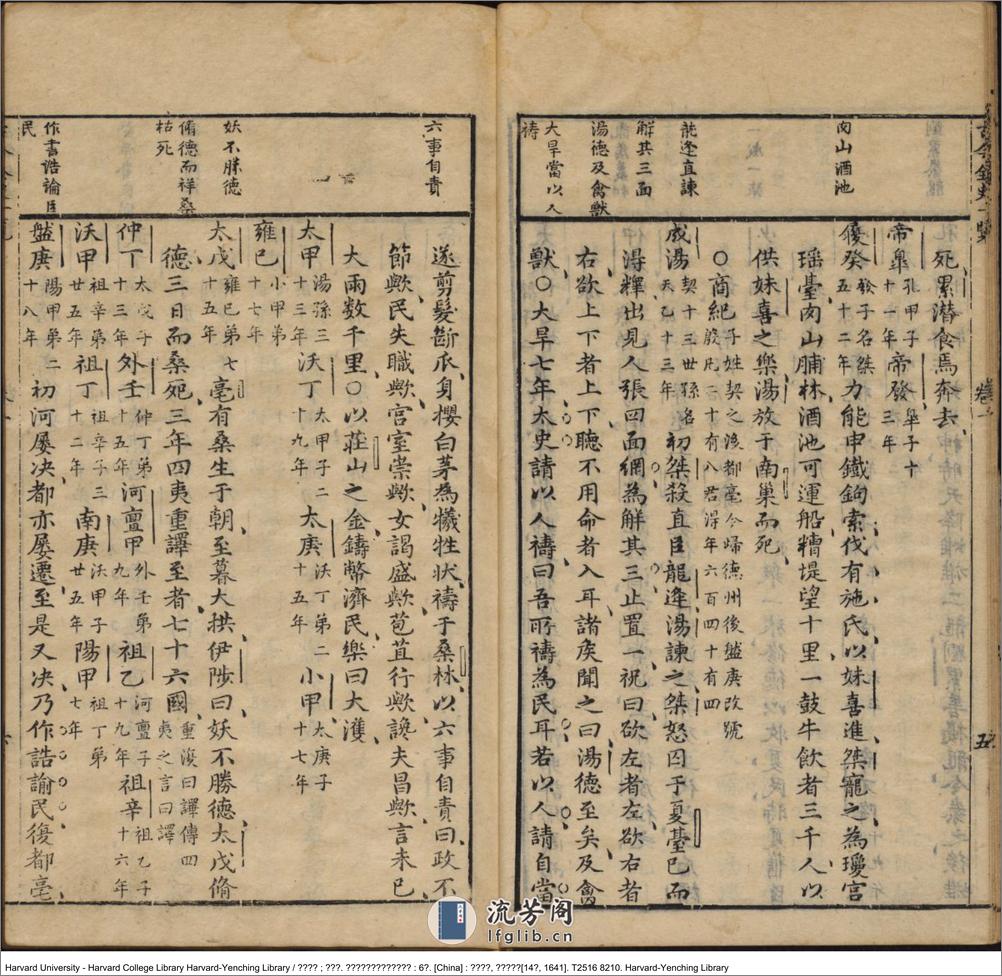 肉山酒池
龍逄直諫
解其三面
湯德及禽獸
大旱當以人
禱
死累潛食焉奔去
帝皐孔甲子十一年帝發皐子十三年
履癸發子名桀五十二年力能申鐵鉤索伐有施氏以妹喜進桀寵之為瓊宮
瑶臺肉山脯林酒池可運船糟堤望十里一鼓牛飲者三千人以
供妹喜之樂湯放于南巢而死
○商紀子姓契之後都亳今歸德州後盤庚改號殷凡二十有八君得年六百四十有四
成湯契十三世孫名天乙十三年初桀殺直臣龍逄湯諫之桀怒囚于夏臺已而
得釋出見人張四面網為解其三止置一祝曰欲左者左欲右者
右欲上下者上下聽不用命者入耳諸侯聞之曰湯德至矣及禽
獸○大旱七年太史請以人禱曰吾所禱為民耳若以人請自當
卷一
五
六事自責
妖不勝德
脩德而祥桑
枯死
作書誥諭臣
民
遂剪髮斷爪身櫻白茅為犧牲狀禱于桑林以六事自責曰政不
節歟民失職歟宮室崇歟女謁盛歟苞苴行歟讒夫昌歟言未已
大雨数千里○以莊山之金鑄幣濟民樂曰大濩
太甲湯孫三十三年沃丁太甲子二十九年太庚沃丁弟二十五年小甲太庚子十七年
雍已小甲弟十七年
太戊雍已弟七十五年亳有桑生于朝至暮大拱伊陟曰妖不勝德太戊脩
德三日而桑死三年四夷重譯至者七十六國重復曰譯傳四夷之言曰譯
仲丁太戊子十三年外壬仲丁弟十五年河亶甲外壬弟九年祖乙河亶子十九年祖辛祖乙子十六年
沃甲祖辛弟廿五年祖丁祖辛子三十二年南庚沃甲子廿五年陽甲祖丁弟七年
盤庚陽甲弟二十八年初河屢决都亦屢遷至是又决乃作誥諭民復都亳
流芳阁
lfglib.cn
Harvard University - Harvard College Library Harvard-Yenching Library / ???? ; ???. ????????????? : 6?. [China] : ????, ?????[14?, 1641]. T2516 8210. Harvard-Yenching Library